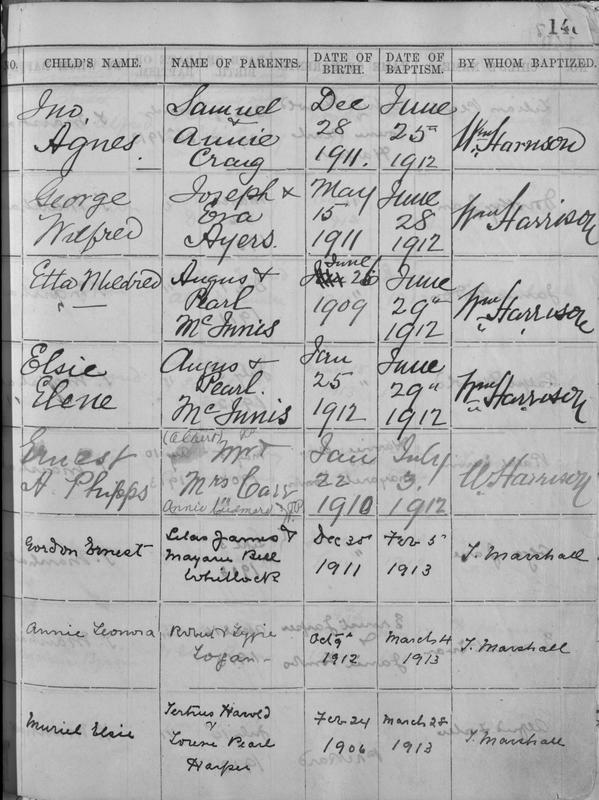 14
NO. CHILD'S NAME. NAME OF PARENTS. DATE OF BIRTH. DATE OF BAPTISM. BY WHOM BAPTIZED.
Jno. Samuel & Dec June
Agnes. Annie 28 25 Wm Harrison
Craig 1911. 1912
George Joseph & May June
Wilfred Eva 15 28 Wm Harrison
Ayers. 1911 1912
Etta Mildred Angus & June 26 June
" — Pearl 1909 29" Wm Harrison
McInnis 1912
Elsie Angus & Jan June
Elene Pearl 25 29" Wm Harrison
McInnis 1912 1912
Ernest (Albert) Mr & Jan July
A Phipps Mrs Carr 22 3 W Harrison
Annie 1910 1912
Gordon Ernest James & Dec 30 Feb 5
Bell 1911 1913 T. Marshall
Whitlock
Annie Leonora Robert & Lizzie Oct 9 March 4
Logan 1912 1913 T. Marshall
Muriel Elsie Tertius Harold Feb 24 March 28
& Lorene Pearl 1906 1913 T. Marshall
Harper